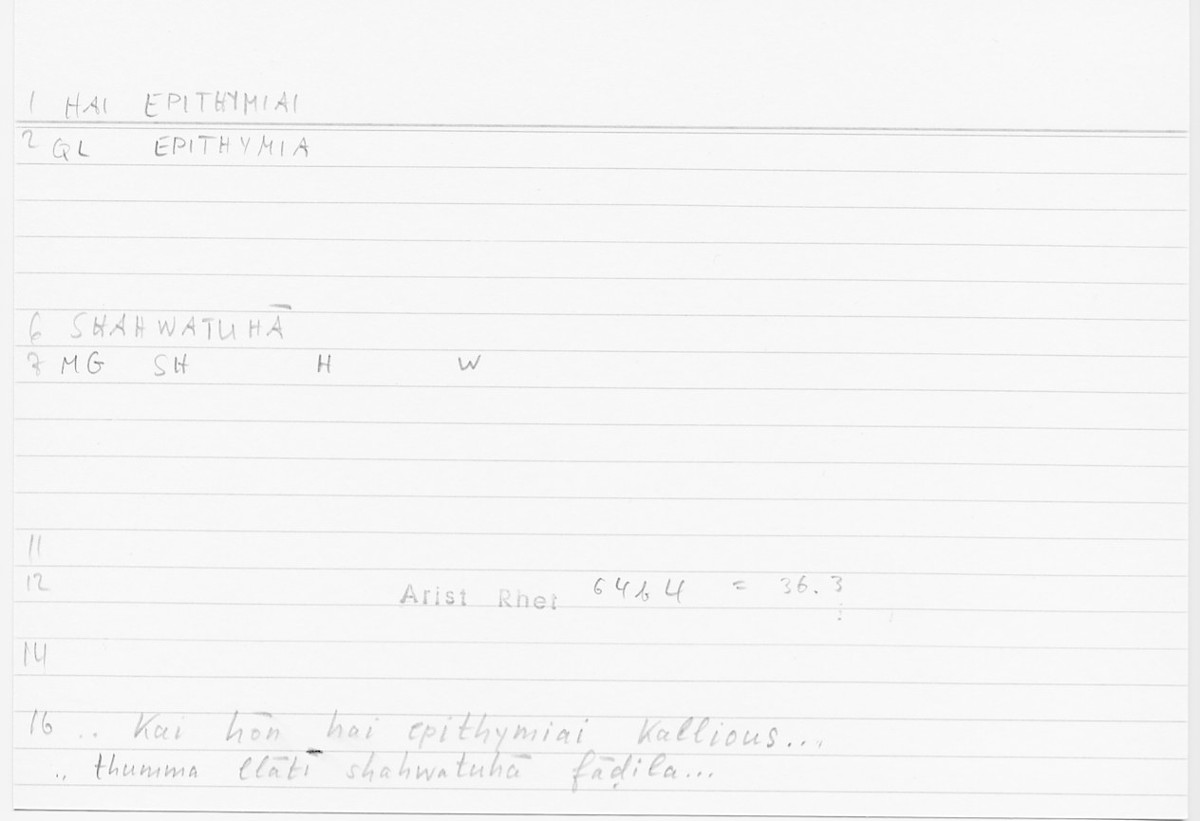 1 HAI EPITHYMIAI
2 QL EPITHYMIA
6 SHAHWATUHĀ
7 MG SH H W
11
12 Arist Rhet 64b4 = 36.3
14
16 .. Kai hōn hai epithymiai Kallious...
.. thumma llātī shahwatuhā fāḍila...